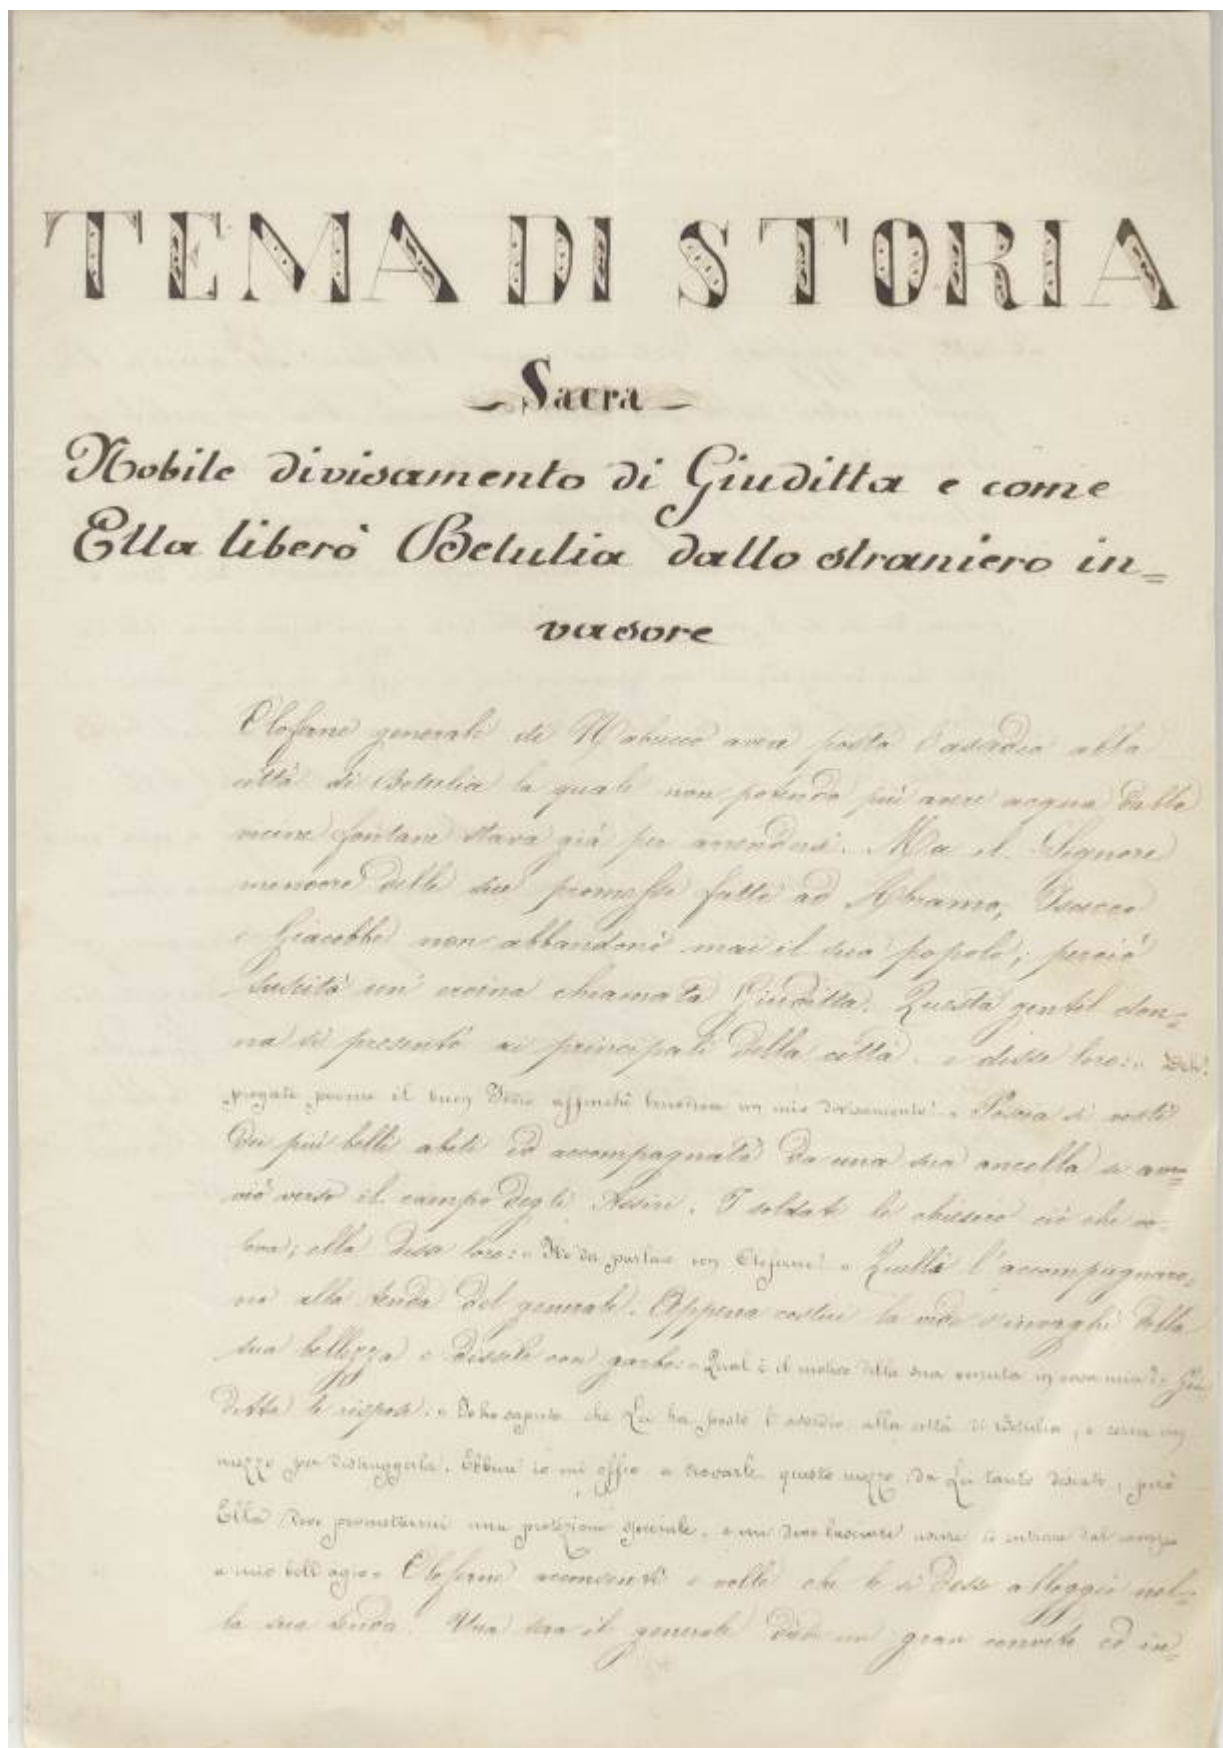 TEMA DI STORIA
- Sacra -
Nobile divisamento di Giuditta e come
Ella liberò Betulia dallo straniero in=
vasore
Oloferne generale di Nabucco avea posto l'assedio alla
città di Betulia la quale non potendo più avere acqua dalle
vicine fontane stava già per arrendersi. Ma il Signore
memore delle sue promesse fatte ad Abramo, Isacco
e Giacobbe non abbandonò mai il suo popolo; perciò
suscitò un' eroina chiamata Giuditta. Questa gentil don=
na si presentò ai principali della città e disse loro: " Deh!
pregate il buon Dio affinchè benedica un mio divisamento! " Poscia si vestì
dei più belli abiti ed accompagnata da una sua ancella si av=
viò verso il campo degli Assiri. I soldati le chiesero ciò che vo=
leva; ella disse loro: " Ho da parlare con Oloferne! " Quelli l'accompagnaro=
no alla tenda del generale. Appena costui la vide s'invaghì della
sua bellezza e dissele con garbo: " Qual è il motivo della sua venuta in casa mia? " Giu=
ditta le rispose: " Io ho saputo che Lei ha posto l'assedio alla città di Betulia, e cerca un
mezzo per distruggerla. Ebbene io mi offro a trovarle questo mezzo da Lei tanto desiato, però
Ella deve promettermi una protezione speciale, e mi deve lasciare uscire ed entrare dal campo
a mio bell'agio " Oloferne acconsentì e volle che le si desse alloggio nel=
la sua tenda. Una sera il generale diede un gran convito ed in=